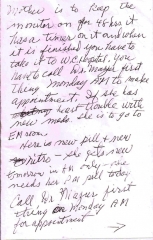 Mother is to keep the
monitor on for 48 hrs it
has a timer on it and when
it is finished you have to
take it to
have to call Dr. first
thing Monday AM to make
appointment. If she has
heart trouble with
new meds. she is to go to
EM room.
Here is new pill & new
nitro - she gets new
in AM only - she
needs her PM pill today
Call Dr. first
thing on Monday AM
for appointment